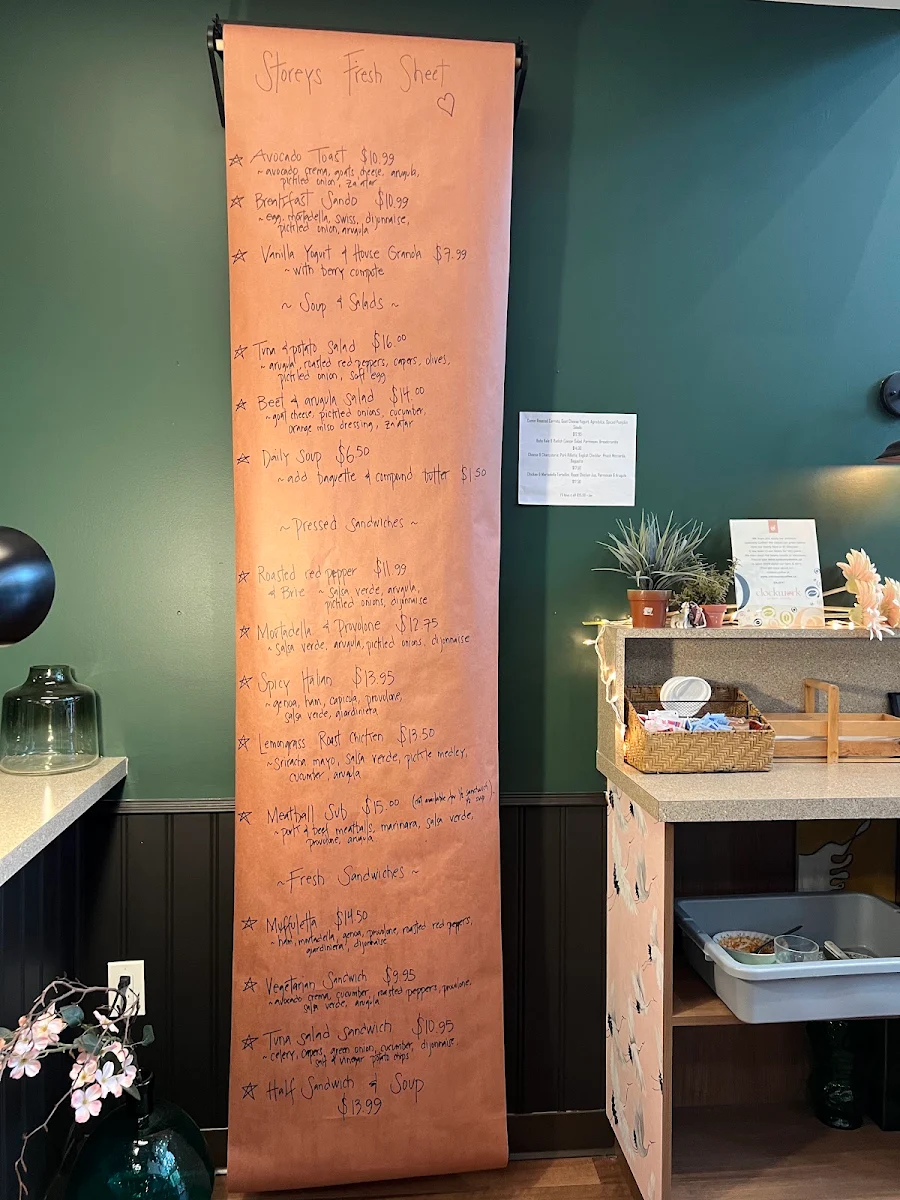 Storeys Fresh Sheet
Avocado Toast $10.99
~ avocado crema, goats cheese, arugula,
pickled onion, za'atar
Breakfast Sando $10.99
~ egg, mortadella, swiss, dijonnaise,
pickled onion, arugula
Vanilla Yogurt & House Granola $7.99
~ with berry compote
~ Soup & Salads ~
Tuna & potato salad $16.00
~ arugula, roasted red peppers, capers, olives,
pickled onion, soft egg
Beet & arugula salad $14.00
~ goat cheese, pickled onions, cucumber,
orange miso dressing, za'atar
Daily Soup $6.50
~ add baguette & compound butter $1.50
~ Pressed Sandwiches ~
Roasted red pepper $11.99
& Brie ~ salsa verde, arugula,
pickled onions, dijonnaise
Mortadella & Provolone $12.75
~ salsa verde, arugula, pickled onions, dijonnaise
Spicy Italian $13.95
~ genoa, ham, capicola, provolone,
salsa verde, giardiniera
Lemongrass Roast Chicken $13.50
~ Sriracha mayo, salsa verde, pickle medley,
cucumber, arugula
Meatball Sub $15.00 (not available for ½ sandwich ½ soup)
~ pork & beef meatballs, marinara, salsa verde,
provolone, arugula
~ Fresh Sandwiches ~
Muffuletta $14.50
~ ham, mortadella, genoa, provolone, roasted red peppers,
giardiniera, dijonnaise
Vegetarian Sandwich $9.95
~ avocado crema, cucumber, roasted peppers, provolone,
salsa verde, arugula
Tuna salad sandwich $10.95
~ celery, capers, green onion, cucumber, dijonnaise,
salt & vinegar potato chips
Half Sandwich & Soup
$13.99
clockwork